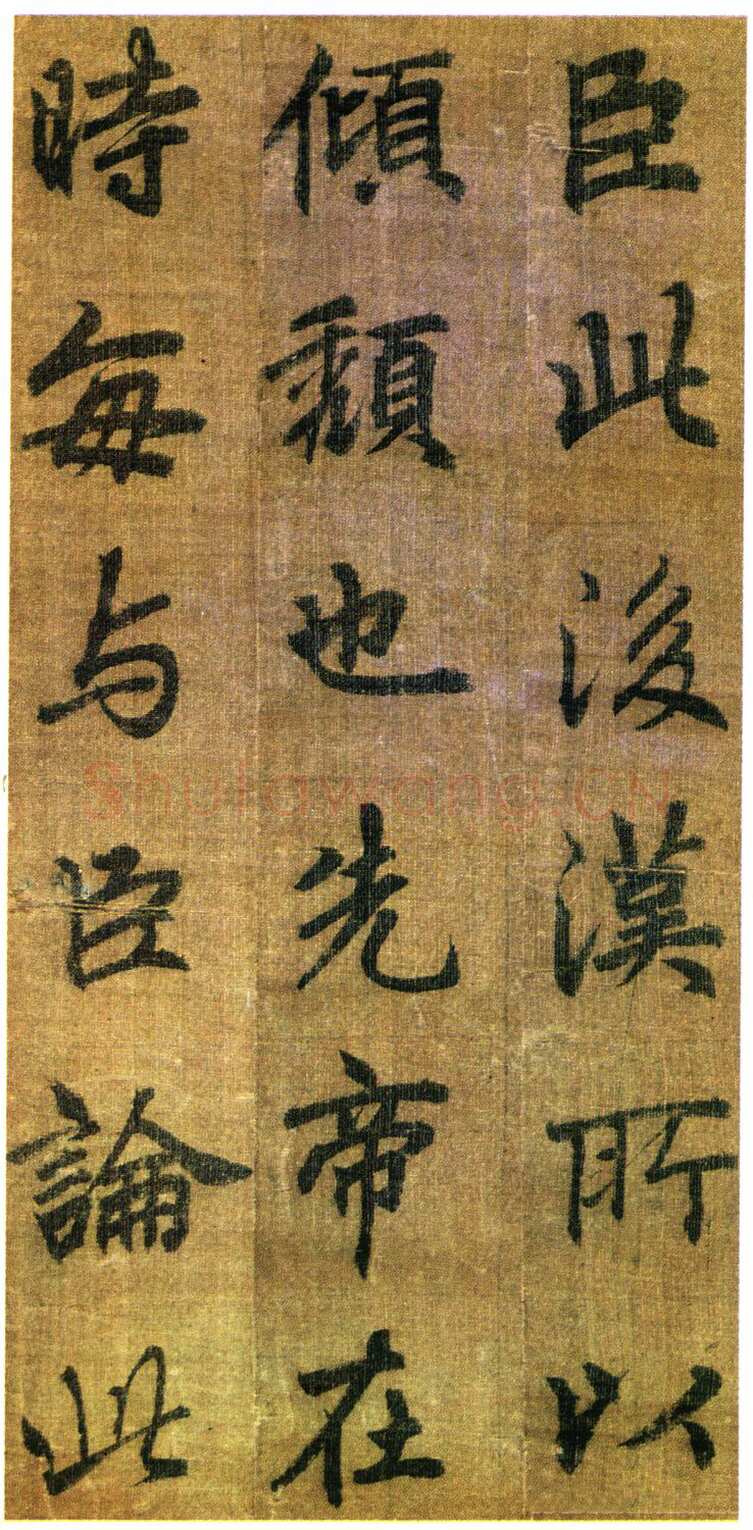 臣此後漢所以
傾頹也先帝在
時每与臣論此
Shufawang.CN